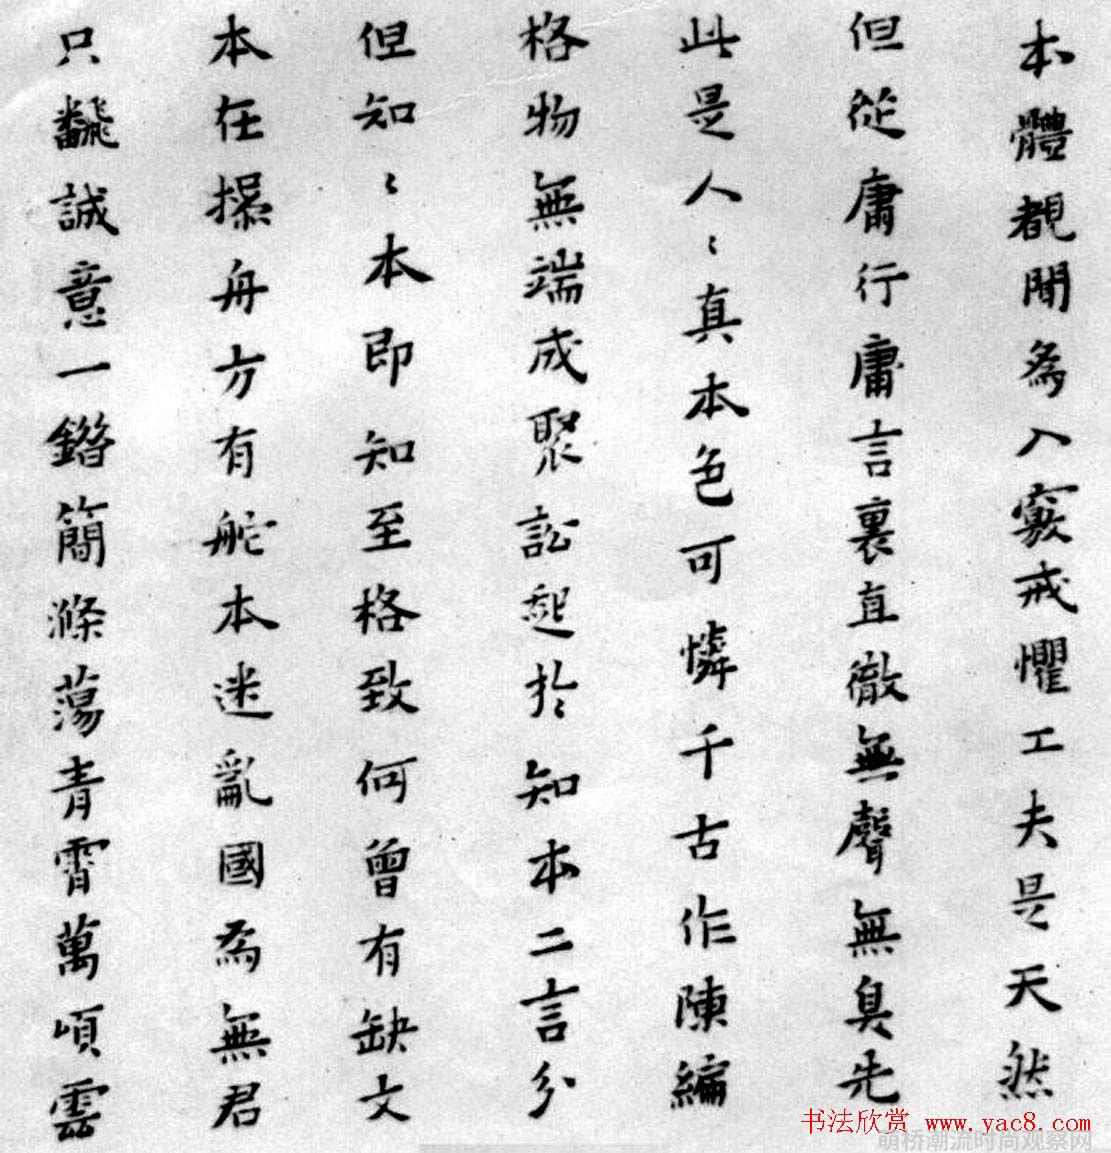 本體覩聞爲入竅戒懼工夫是天然
但從庸行庸言裏直徹無聲無臭先
此是人〻真本色可憐千古作陳編
格物無端成聚訟起於知本二言分
但知〻本即知至格致何曾有缺文
本在操舟方有舵本迷亂國爲無君
只飜誠意一錯簡滌蕩青霄萬頃雲
书法欣赏 www.yac8.com
萌桥潮流时尚观察网